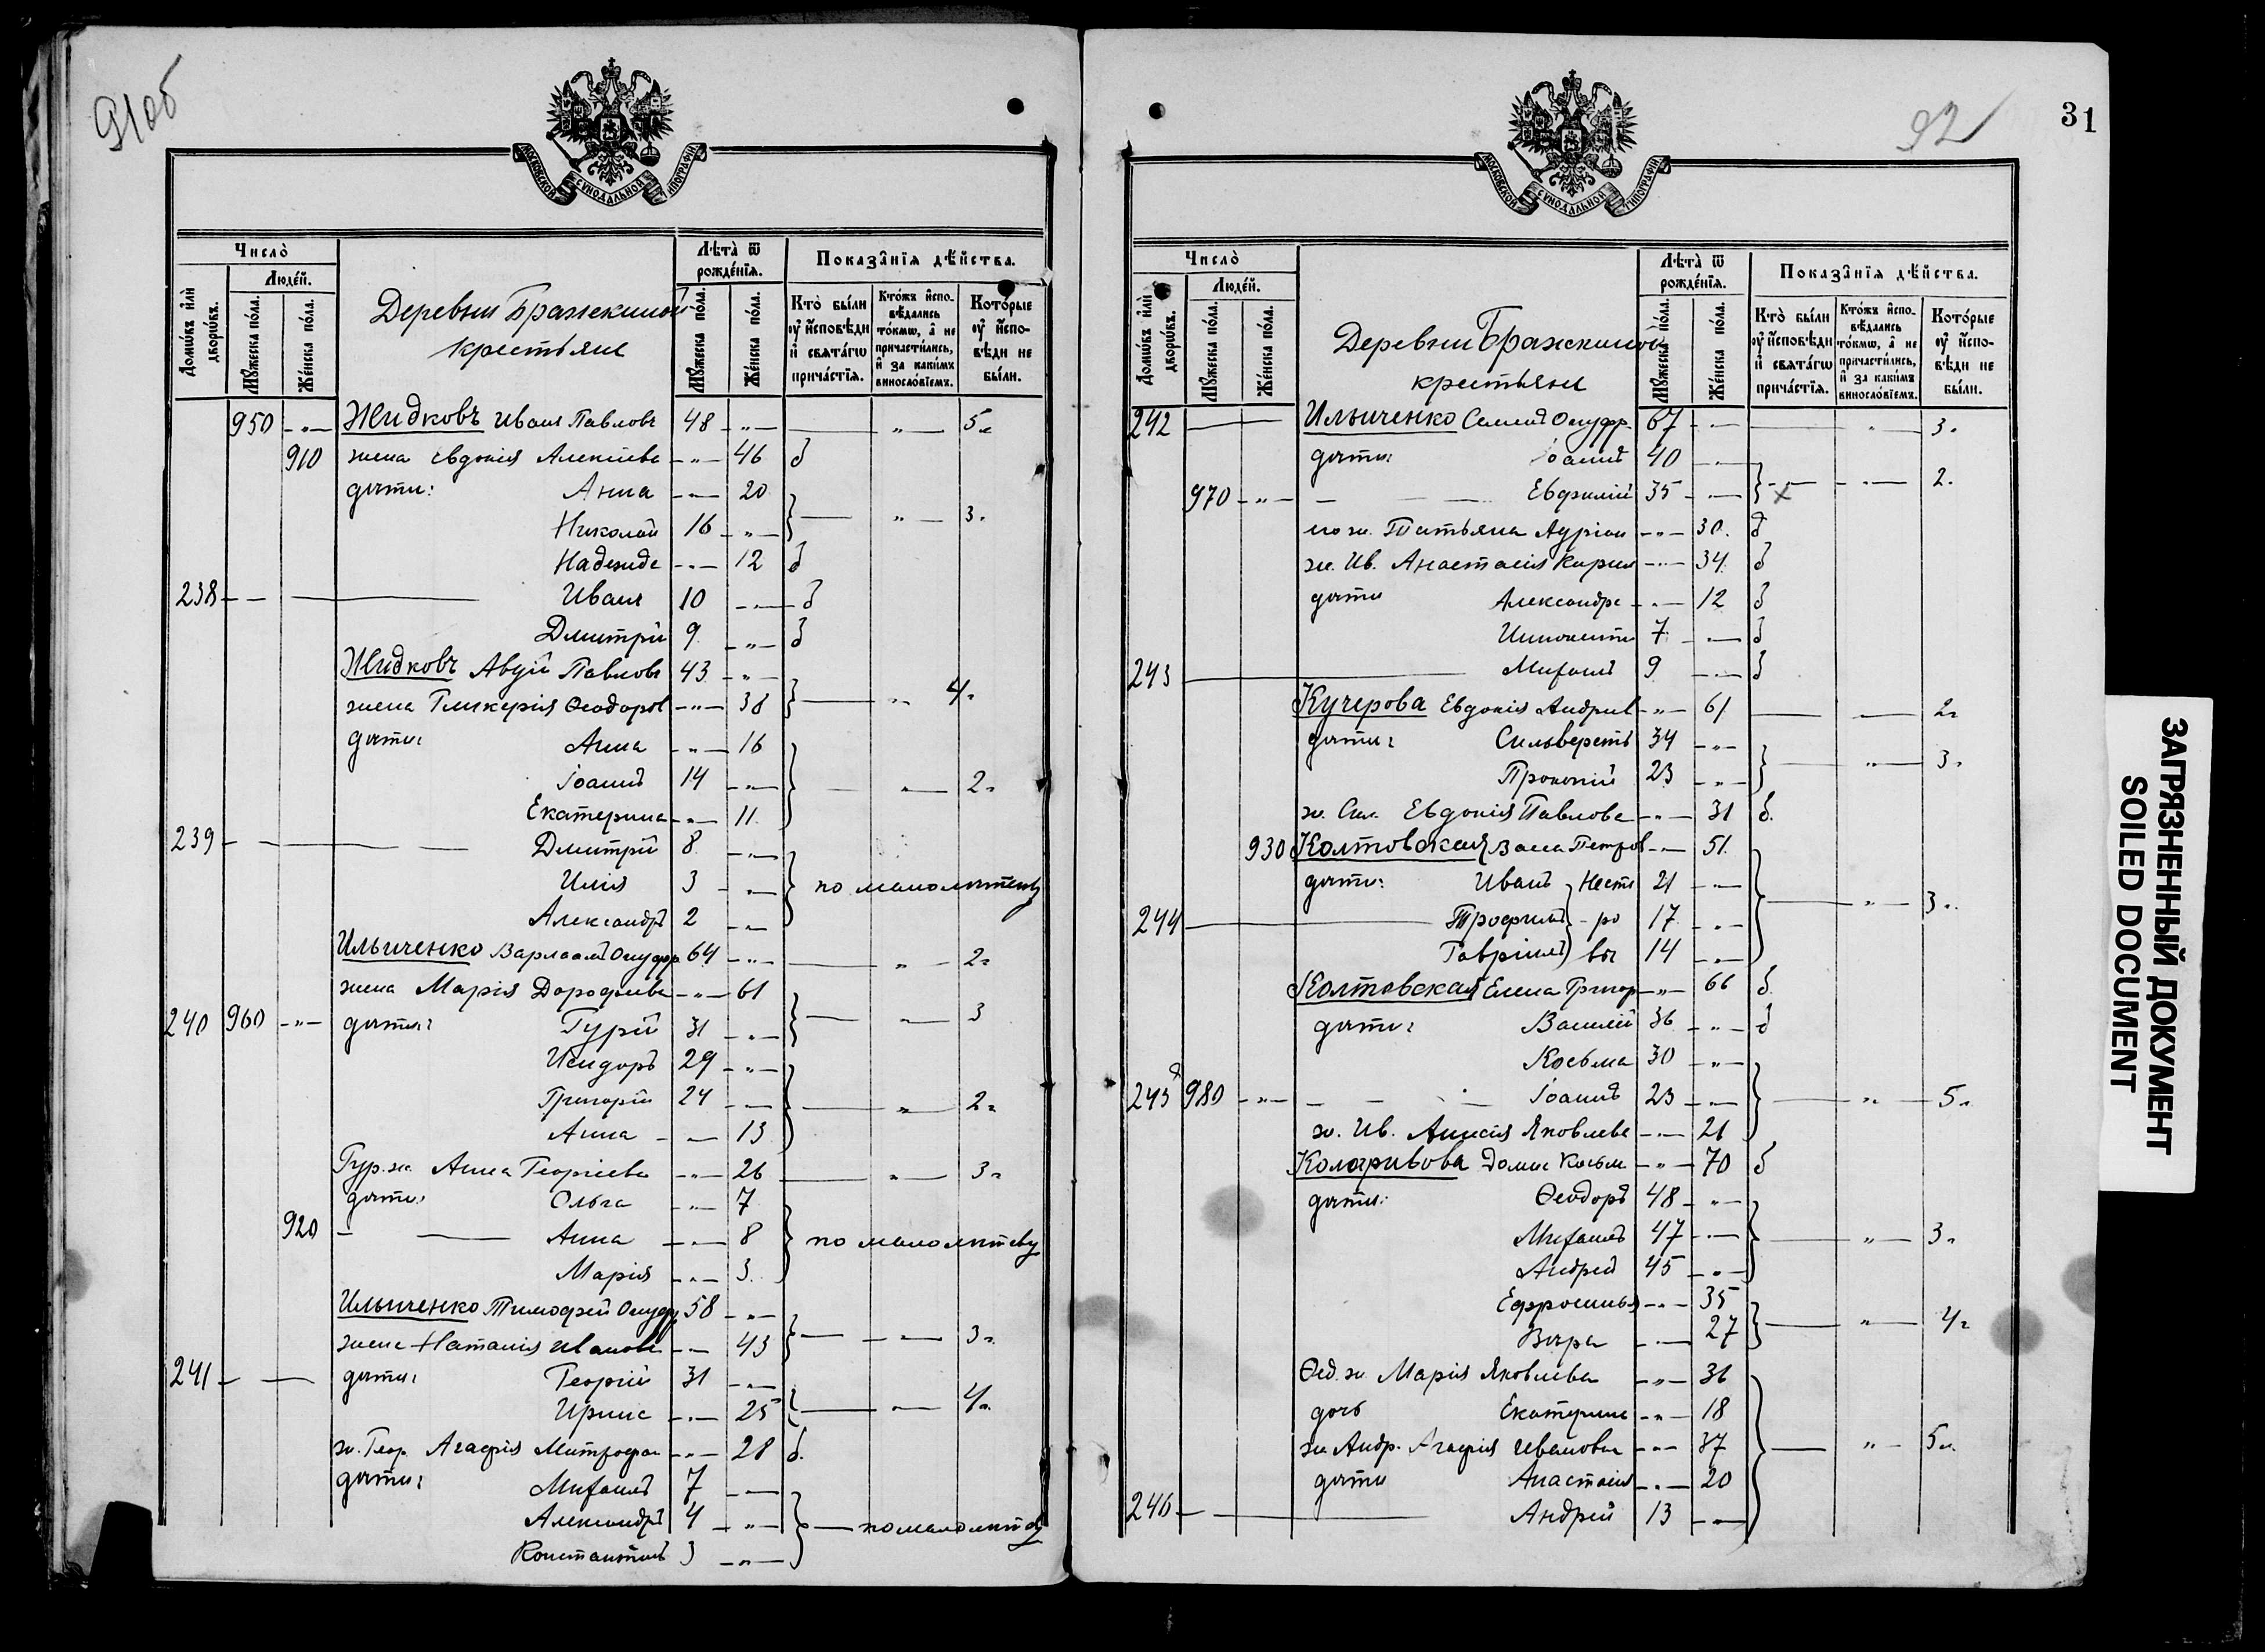 91об
МОСКОВСКОЙ СѴНОДАЛЬНОЙ ТИПОГРАФІИ
Число̀
Домѡ́въ и҆лѝ дворѡ́въ.
Люде́й.
Мꙋ́жеска по́ла.
Же́нска по́ла.
Деревни Бражкиной
крестьяне
Лѣ́та ѿ рожде́нїя.
Мꙋ́жеска по́ла.
Же́нска по́ла.
Показа̂нїя дѣ́йства.
Кто̀ бы́ли ᲂу҆ и҆сповѣ́ди и҆ свѧта́гѡ прича́стїѧ.
Кто́жъ и҆спо-вѣ́дались то́кмѡ, а҆ не причасти́лись, и҆ за каки́мъ винослѡ́вїемъ.
Кото́рые ᲂу҆ и҆спо-вѣ́ди не бы́ли.
950 -„- Жидковъ Иванъ Павловъ 48 -„- — „ — 5.
910 жена Евдокія Алексѣева -„- 46 б
дѣти: Анна -„- 20
Николай 16 -„- } — „ — 3.
Надежда -„- 12 б
238 — Иванъ 10 -„- б
Дмитрій 9 -„- б
Жидковъ Авдій Павловъ 43 -„-
жена Гликерія Ѳеодоров -„- 38 } — „ — 4.
дѣти: Анна -„- 16
Іоаннъ 14 -„- } — „ — 2.
Екатерина -„- 11
239 — Дмитрій 8 -„-
Илія 3 -„- } по малолѣтству
Александръ 2 -„-
Ильиченко Варлаамъ Онуфр 64 -„- — „ — 2.
жена Марія Дорофеева -„- 61
240 960 -„- дѣти: Гурій 31 -„- } — „ — 3
Исидоръ 29 -„-
Григорій 24 -„- } — „ — 2.
Анна -„- 13
Гур. ж. Анна Георгіева -„- 26 — „ — 3.
дѣти: Ольга -„- 7
920 — Анна -„- 8 } по малолѣтству
Марія -„- 3
Ильиченко Тимофей Онуфр 58 -„-
жена Наталія Иванова -„- 43 } — „ — 3.
241 — дѣти: Георгій 31 -„-
Ирина -„- 25 } — „ — 4.
ж. Геор. Агафія Митрофан -„- 28 б.
дѣти: Михаилъ 7 -„-
Александръ 4 -„- } — по малолѣтству
Константинъ 3 -„-
92
31
МОСКОВСКОЙ СѴНОДАЛЬНОЙ ТИПОГРАФІИ
Число̀
Домѡ́въ и҆лѝ дворѡ́въ.
Люде́й.
Мꙋ́жеска по́ла.
Же́нска по́ла.
Деревни Бражкиной
крестьяне
Лѣ́та ѿ рожде́нїя.
Мꙋ́жеска по́ла.
Же́нска по́ла.
Показа̂нїя дѣ́йства.
Кто̀ бы́ли ᲂу҆ и҆сповѣ́ди и҆ свѧта́гѡ прича́стїѧ.
Кто́жъ и҆спо-вѣ́дались то́кмѡ, а҆ не причасти́лись, и҆ за каки́мъ винослѡ́вїемъ.
Кото́рые ᲂу҆ и҆спо-вѣ́ди не бы́ли.
242 — Ильиченко Семенъ Онуфр. 67 -„- — „ — 3.
дѣти: Іоаннъ 40 -„-
970 -„- — Евфимій 35 -„- } — „ — 2.
его ж. Татьяна Адріан -„- 30. б
ж. Ив. Анастасія Кирил -„- 34 б
дѣти Александра -„- 12 б
Иннокент 7 -„- б
243 — Михаилъ 9 -„- б
Кучерова Евдокія Андрив -„- 61 — — 2.
дѣти: Сильверстъ 34 -„-
Прокопій 23 -„- } — „ — 3.
ж. Сил. Евдокія Павлова -„- 31 б.
930 Колтовская Васса Петров -„- 51
дѣти: Иванъ } Несте 21 -„-
244 — Трофимъ } - ро 17 -„- } — „ — 3.
Гавріилъ } вы 14 -„-
Колтовская Елена Григор -„- 66 б.
дѣти: Василій 36 -„- б
Косьма 30 -„-
245 980 -„- — Іоаннъ 23 -„- } — „ — 5.
ж. Ив. Анисія Яковлева -„- 21
Домна Косьм -„- 70 б
дѣти: Ѳеодоръ 48 -„-
Михаилъ 47 -„- } — „ — 3.
Андрей 45 -„-
Ефросинья -„- 35
Вѣра -„- 27 } — „ — 4.
Ѳед. ж. Марія Яковлева -„- 36
дочь Екатерина -„- 18
ж. Андр. Агафія Иванова -„- 37 } — „ — 5.
дѣти Анастасія -„- 20
246 — Андрей 13 -„-
ЗАГРЯЗНЕННЫЙ ДОКУМЕНТ
SOILED DOCUMENT